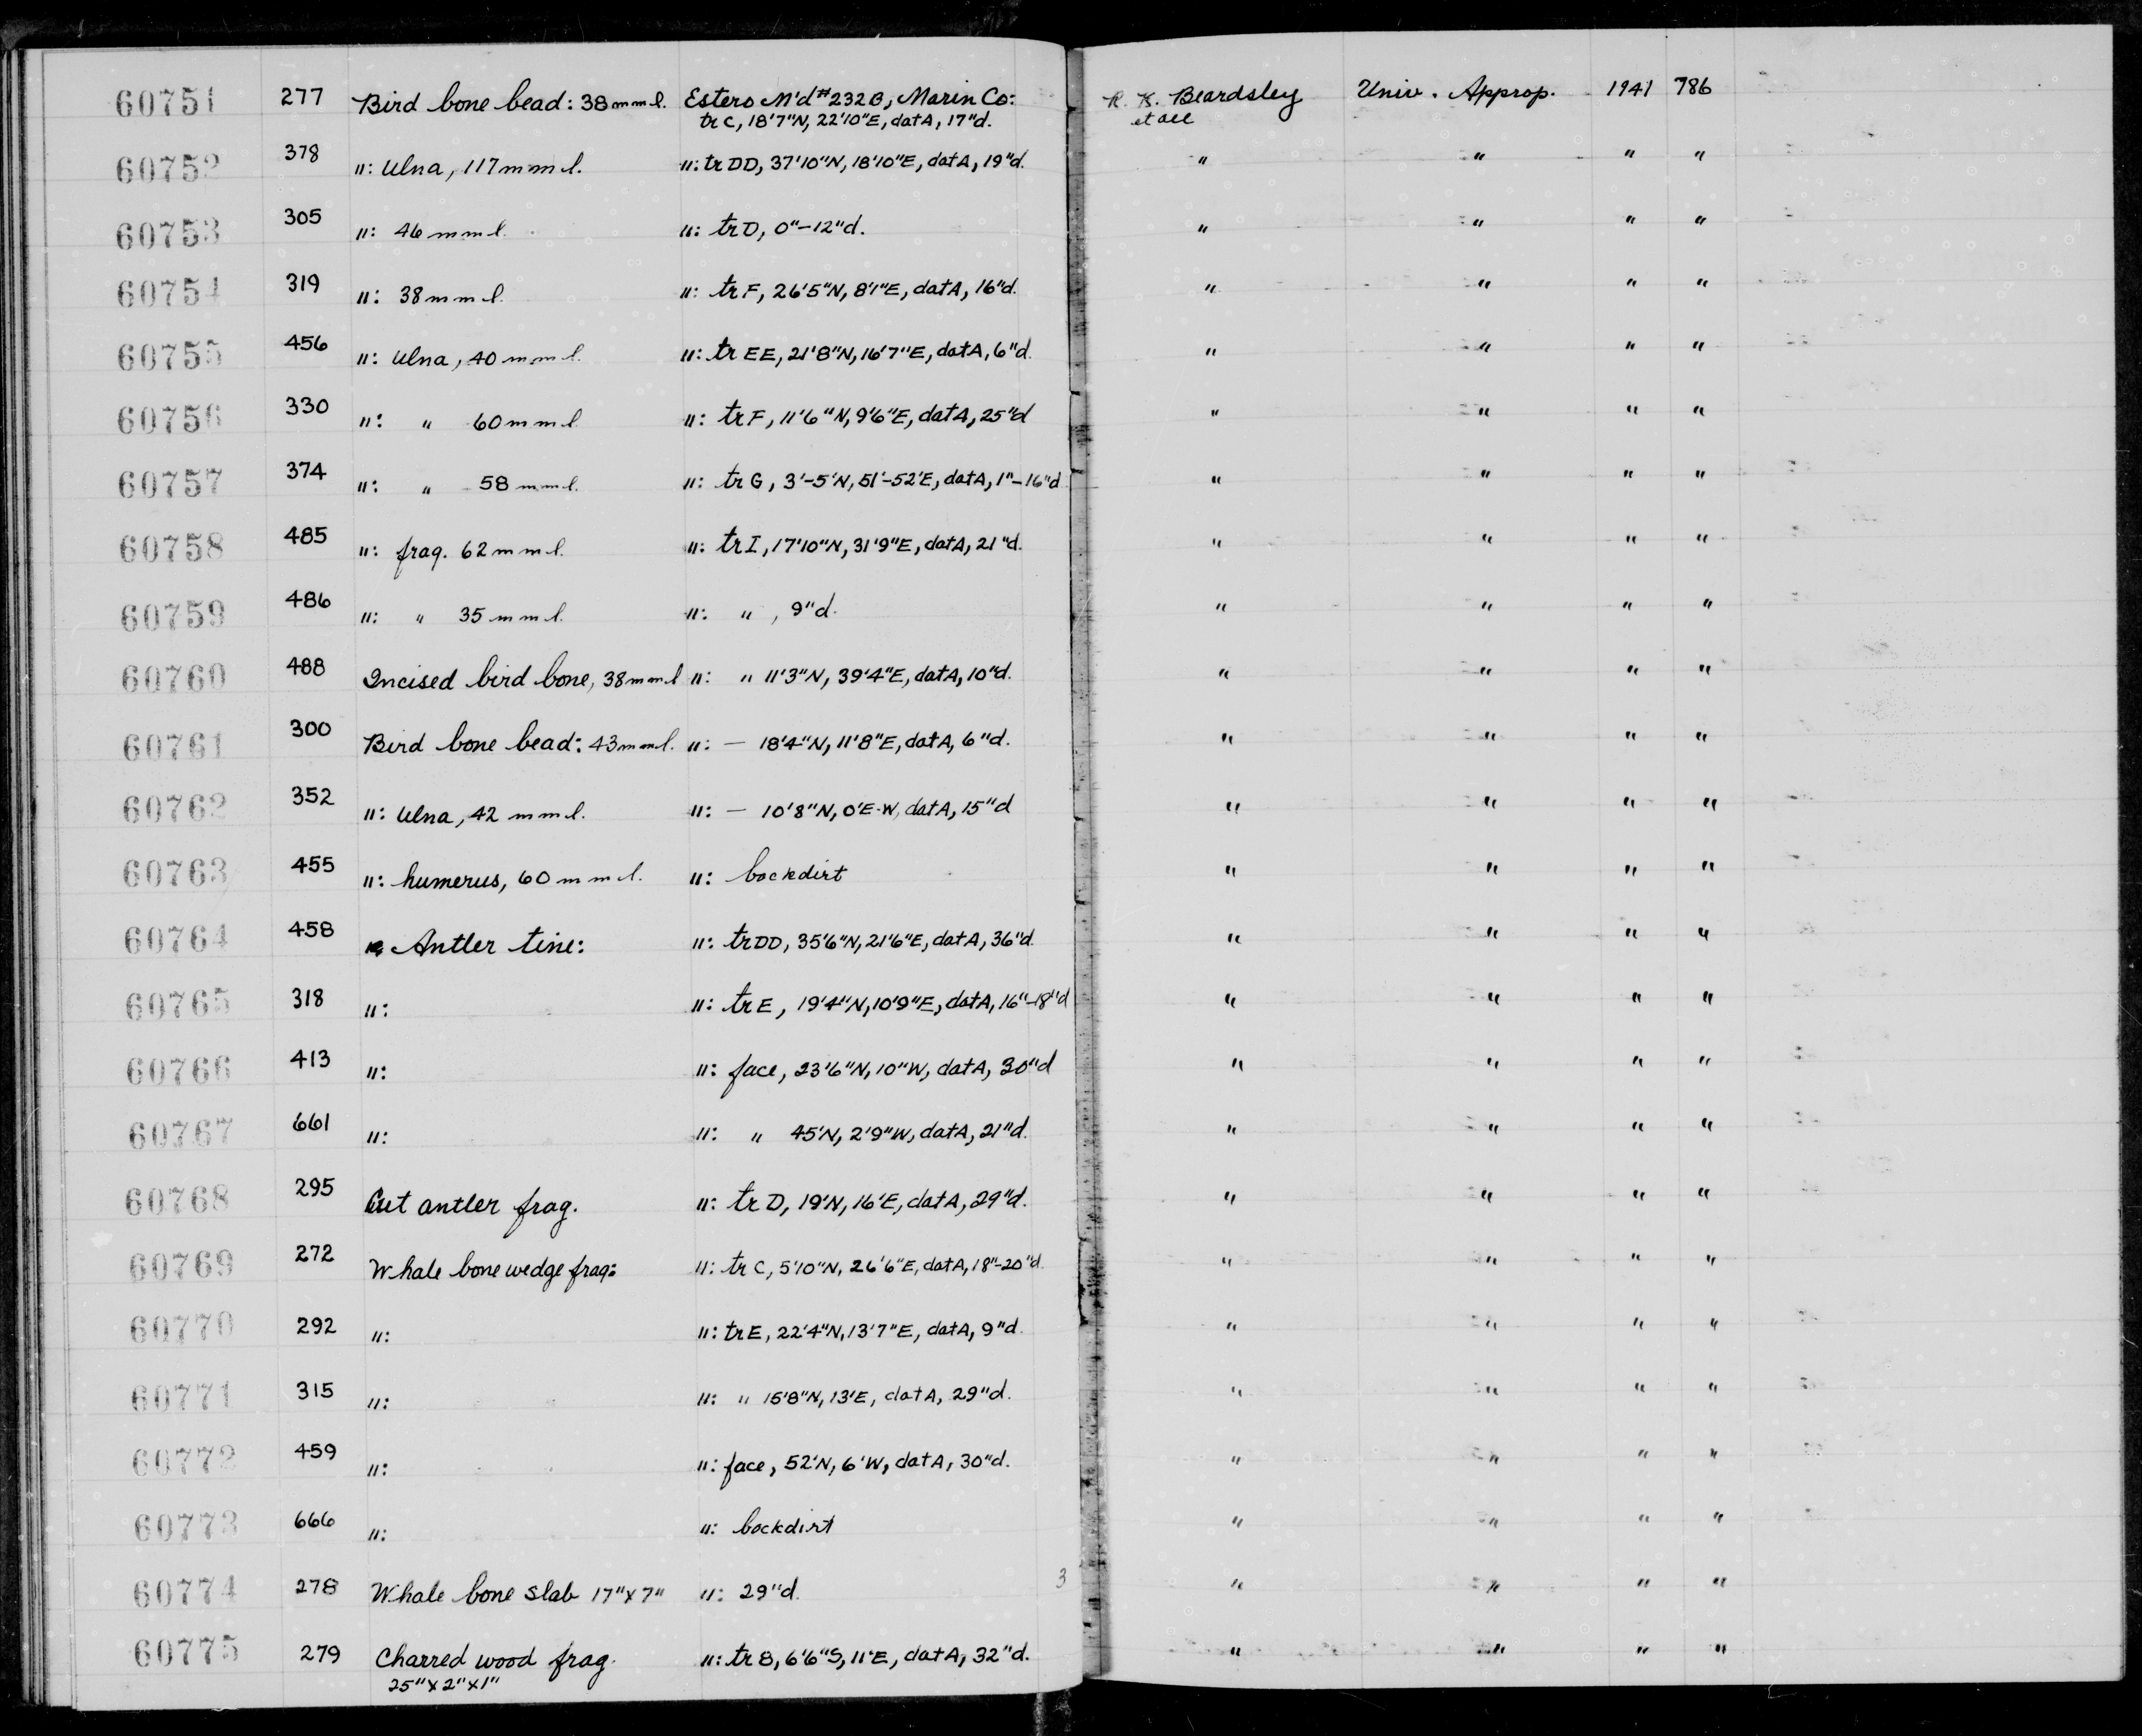 60751 277 Bird bone bead: 38 mm l. Estero M'd #232B, Marin Co: R. K. Beardsley Univ. Approp. 1941 786
tr C, 18'7"N, 22'10"E, dat A, 17"d. et all
60752 378 ": ulna, 117 mm l. ": tr DD, 37'10"N, 18'10"E, dat A, 19"d. " " " "
60753 305 ": 46 mm l. ": tr D, 0"–12"d. " " " "
60754 319 ": 38 mm l. ": tr F, 26'5"N, 8'1"E, dat A, 16"d. " " " "
60755 456 ": ulna, 40 mm l. ": tr EE, 21'8"N, 16'7"E, dat A, 6"d. " " " "
60756 330 ": " 60 mm l. ": tr F, 11'6"N, 9'6"E, dat A, 25"d " " " "
60757 374 ": " 58 mm l. ": tr G, 3'–5'N, 51'–52'E, dat A, 1"–16"d " " " "
60758 485 ": frag. 62 mm l. ": tr I, 17'10"N, 31'9"E, dat A, 21"d. " " " "
60759 486 ": " 35 mm l. ": " , 9"d. " " " "
60760 488 Incised bird bone, 38 mm l ": " 11'3"N, 39'4"E, dat A, 10"d. " " " "
60761 300 Bird bone bead: 43 mm l. ": — 18'4"N, 11'8"E, dat A, 6"d. " " " "
60762 352 ": ulna, 42 mm l. ": — 10'8"N, 0'E-W, dat A, 15"d " " " "
60763 455 ": humerus, 60 mm l. ": backdirt " " " "
60764 458 Antler tine: ": tr DD, 35'6"N, 21'6"E, dat A, 36"d. " " " "
60765 318 ": ": tr E, 19'4"N, 10'9"E, dat A, 16"–18"d " " " "
60766 413 ": ": face, 23'6"N, 10"W, dat A, 30"d " " " "
60767 661 ": ": " 45'N, 2'9"W, dat A, 21"d. " " " "
60768 295 Cut antler frag. ": tr D, 19'N, 16'E, dat A, 29"d. " " " "
60769 272 Whale bone wedge frag: ": tr C, 5'10"N, 26'6"E, dat A, 18"–20"d. " " " "
60770 292 ": ": tr E, 22'4"N, 13'7"E, dat A, 9"d. " " " "
60771 315 ": ": " 15'8"N, 13'E, dat A, 29"d. " " " "
60772 459 ": ": face, 52'N, 6'W, dat A, 30"d. " " " "
60773 666 ": ": backdirt " " " "
60774 278 Whale bone slab 17"x7" ": 29"d. 3 " " " "
60775 279 Charred wood frag. ": tr B, 6'6"S, 11'E, dat A, 32"d. " " " "
25"x2"x1"